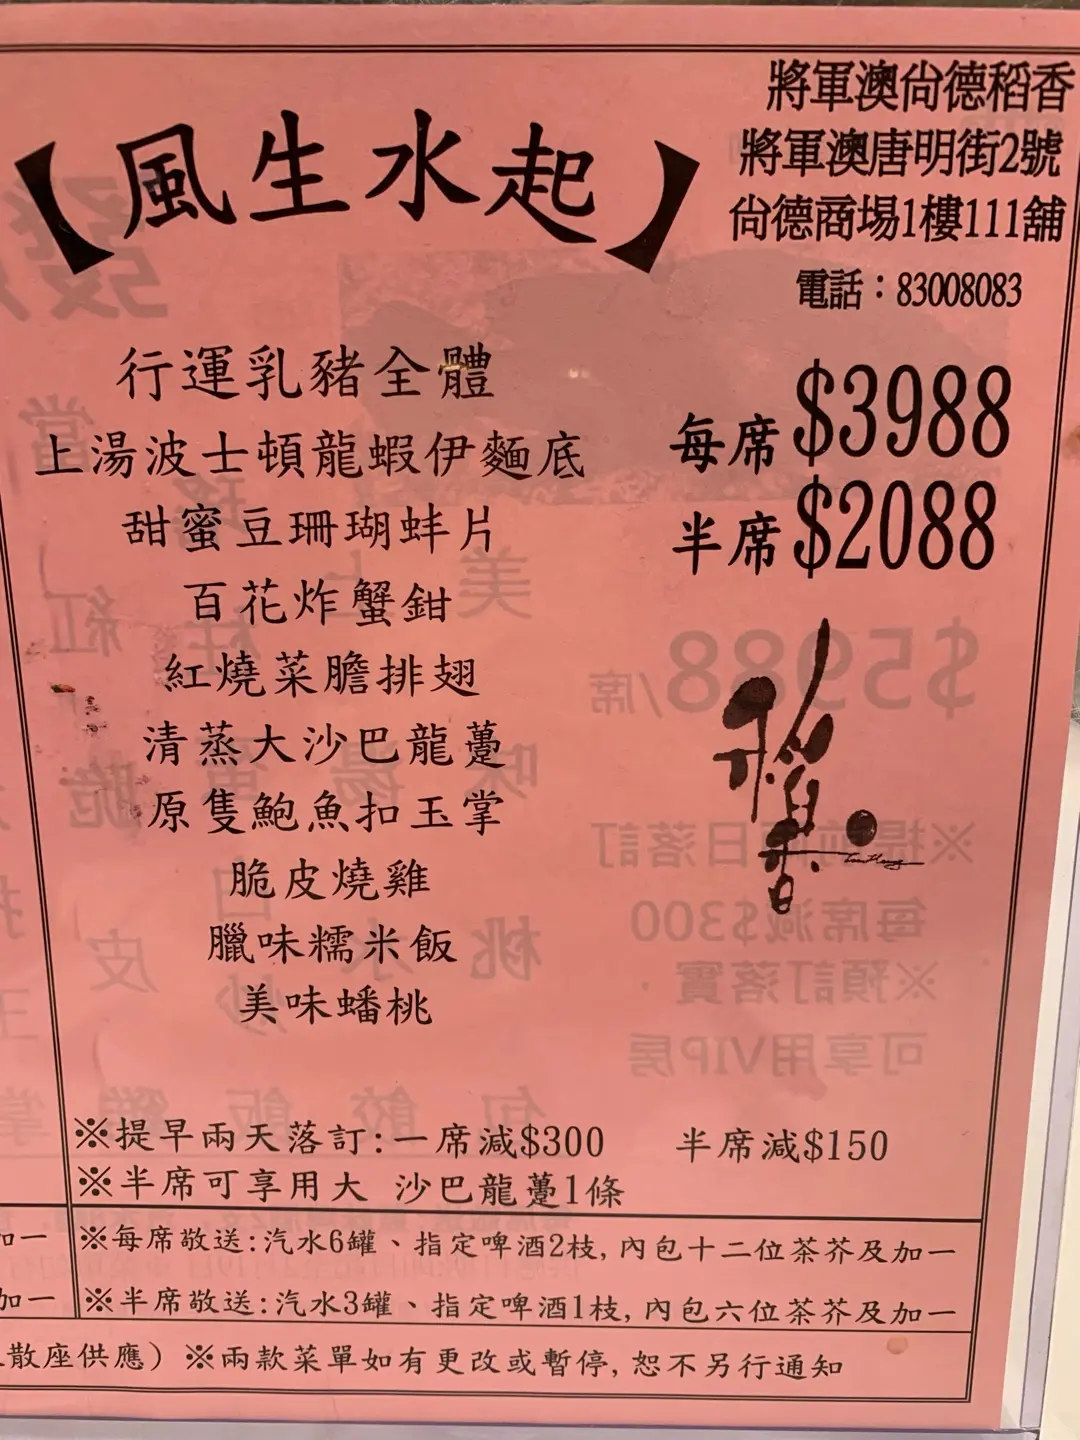 【風生水起】
將軍澳尙德稻香
將軍澳唐明街2號
尙德商場1樓111舖
電話：83008083
行運乳豬全體
上湯波士頓龍蝦伊麵底
甜蜜豆珊瑚蚌片
百花炸蟹鉗
紅燒菜膽排翅
清蒸大沙巴龍躉
原隻鮑魚扣玉掌
脆皮燒雞
臘味糯米飯
美味蟠桃
每席$3988
半席$2088
稻香
※提早兩天落訂:一席減$300 半席減$150
※半席可享用大 沙巴龍躉1條
加一
※每席敬送:汽水6罐、指定啤酒2枝,內包十二位茶芥及加一
加一
※半席敬送:汽水3罐、指定啤酒1枝,內包六位茶芥及加一
散座供應）※兩款菜單如有更改或暫停,恕不另行通知